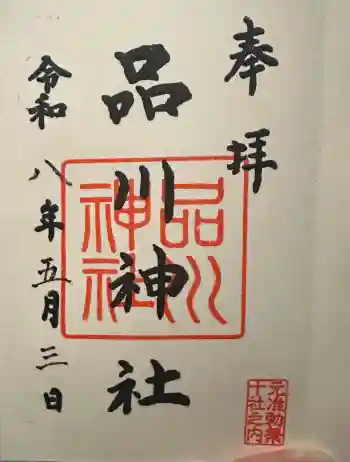 奉拝
品川神社
令和八年五月三日
品川神社
元准勅祭
十社之内